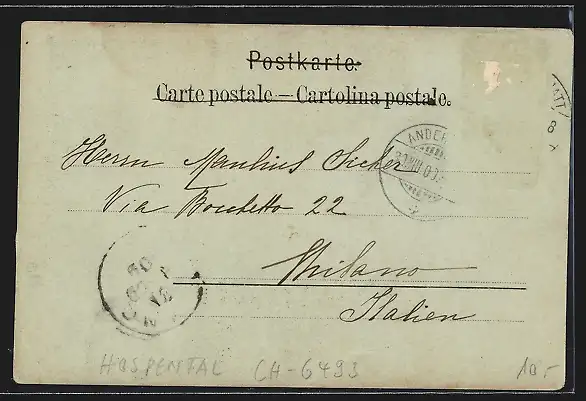 Postkarte.
Carte postale — Cartolina postale.
ANDER
ATT
8 X
Herrn Manlius Sicher
Via Bocchetto 22
Milano
Italien
HOSPENTAL CH-6493 10.-